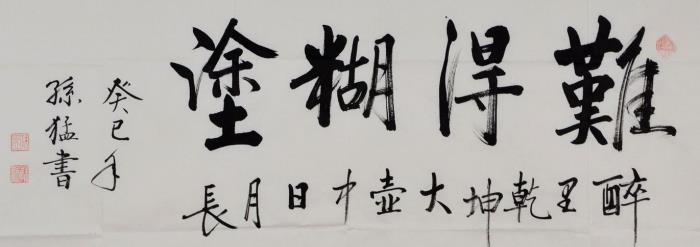 難得糊塗
醉里乾坤大壺中日月長
癸巳年
孫猛書